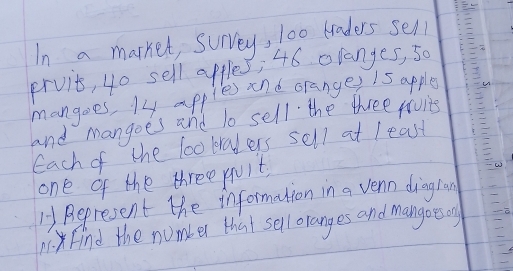 In a market, survey, 100 traders sell
fruit, 40 sell apples, 46 oranges, 50
mangoes, 14 apples and oranges, 15 apple
and mangoes and 10 sell the three fruits
Each of the 100 traders sell at least
one of the three fruit.
1-) Represent the information in a venn diagram
11-) Find the number that sell oranges and mangoes only